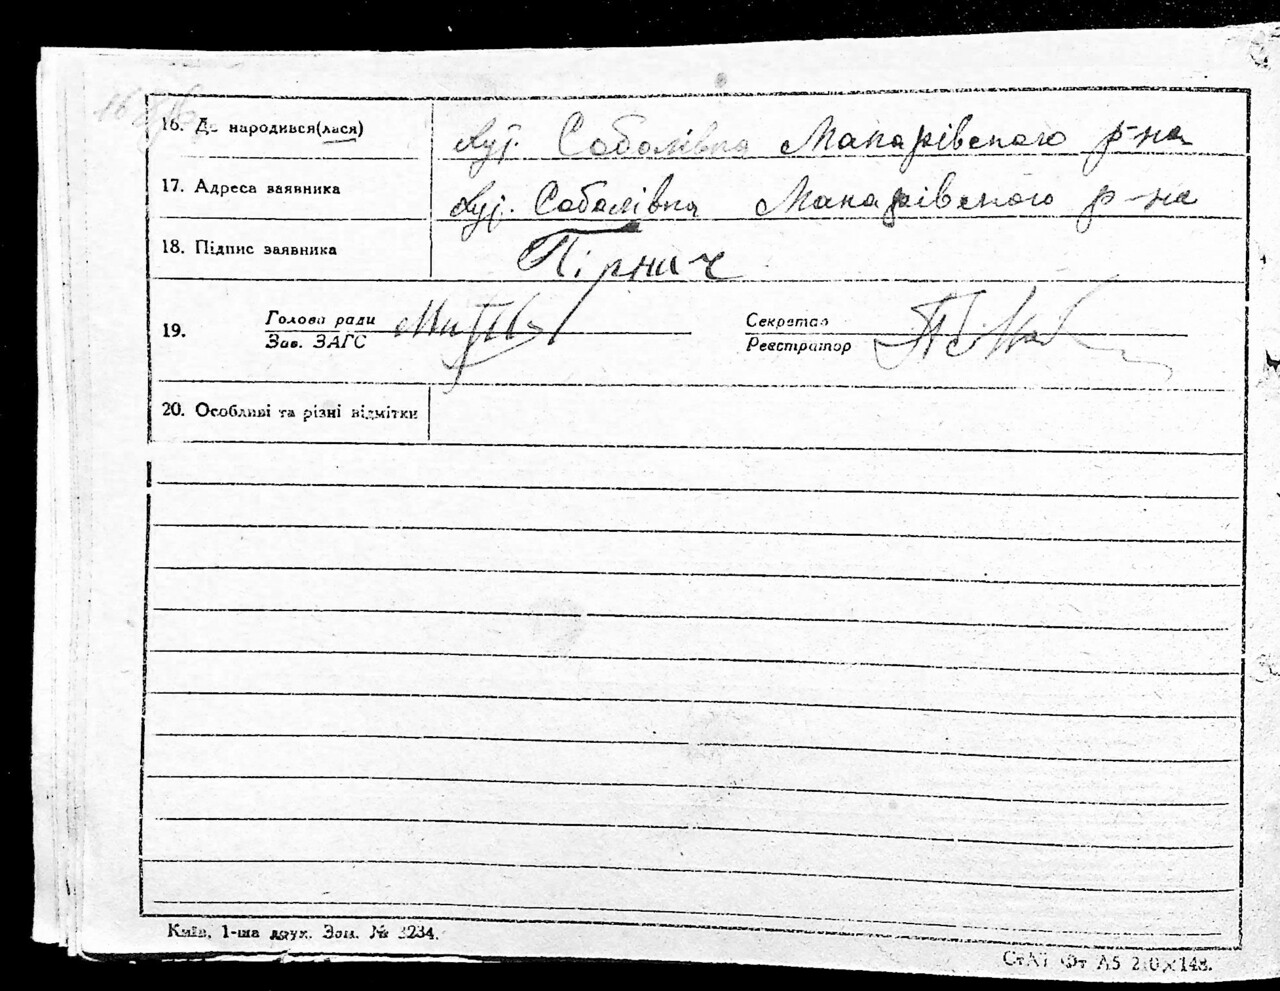 16. Де народився(лася) хут. Соболівка Макарівского р-на
17. Адреса заявника хут. Соболівка Макарівского р-на
18. Підпис заявника Пірнач
19. Голова ради
Зав. ЗАГС
Секретар
Реєстратор
20. Особливі та різні відмітки
Київ, 1-ша друк. Зам. № 3234.
Ст. А5 210×148.